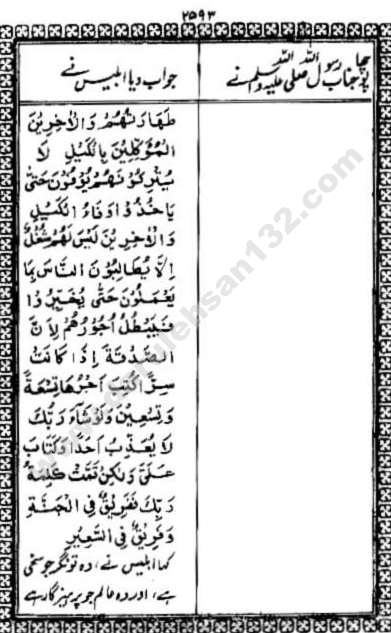 ۲۵۹۳
پوچھا جناب رسول اللہ صلی اللہ علیہ وسلم نے
جواب دیا ابلیس نے
طَهَارَتَهُمْ وَالْاٰخِرِيْنَ
الْمُؤَكَّلِيْنَ بِالْكَيْلِ لَا
يَتْرُكُوْنَهُمْ يُوْفُوْنَ حَتّٰى
يَاْخُذُوْا وَفَاءَ الْكَيْلِ
وَالْاٰخِرِيْنَ لَيْسَ لَهُمْ شُغْلٌ
اِلَّا يُطَالِبُوْنَ النَّاسَ بِمَا
يَعْمَلُوْنَ حَتّٰى يُخْبِرُوْا
فَيَبْطُلُ اُجُوْرُهُمْ لِاَنَّ
الصَّدَقَةَ اِذَا كَانَتْ
سِرًّا كُتِبَ اَجْرُهَا تِسْعَةً
وَتِسْعِيْنَ وَلَوْ شَاءَ رَبُّكَ
لَا يُعَذِّبُ اَحَدًا وَلَتَابَ
عَلَيَّ وَلٰكِنْ تَمَّتْ كَلِمَةُ
رَبِّكَ فَرِيْقٌ فِي الْجَنَّةِ
وَفَرِيْقٌ فِي السَّعِيْرِ
کہا ابلیس نے، وہ تونگر جو سخی
ہے، اور وہ عالم جو پرہیزگار ہے